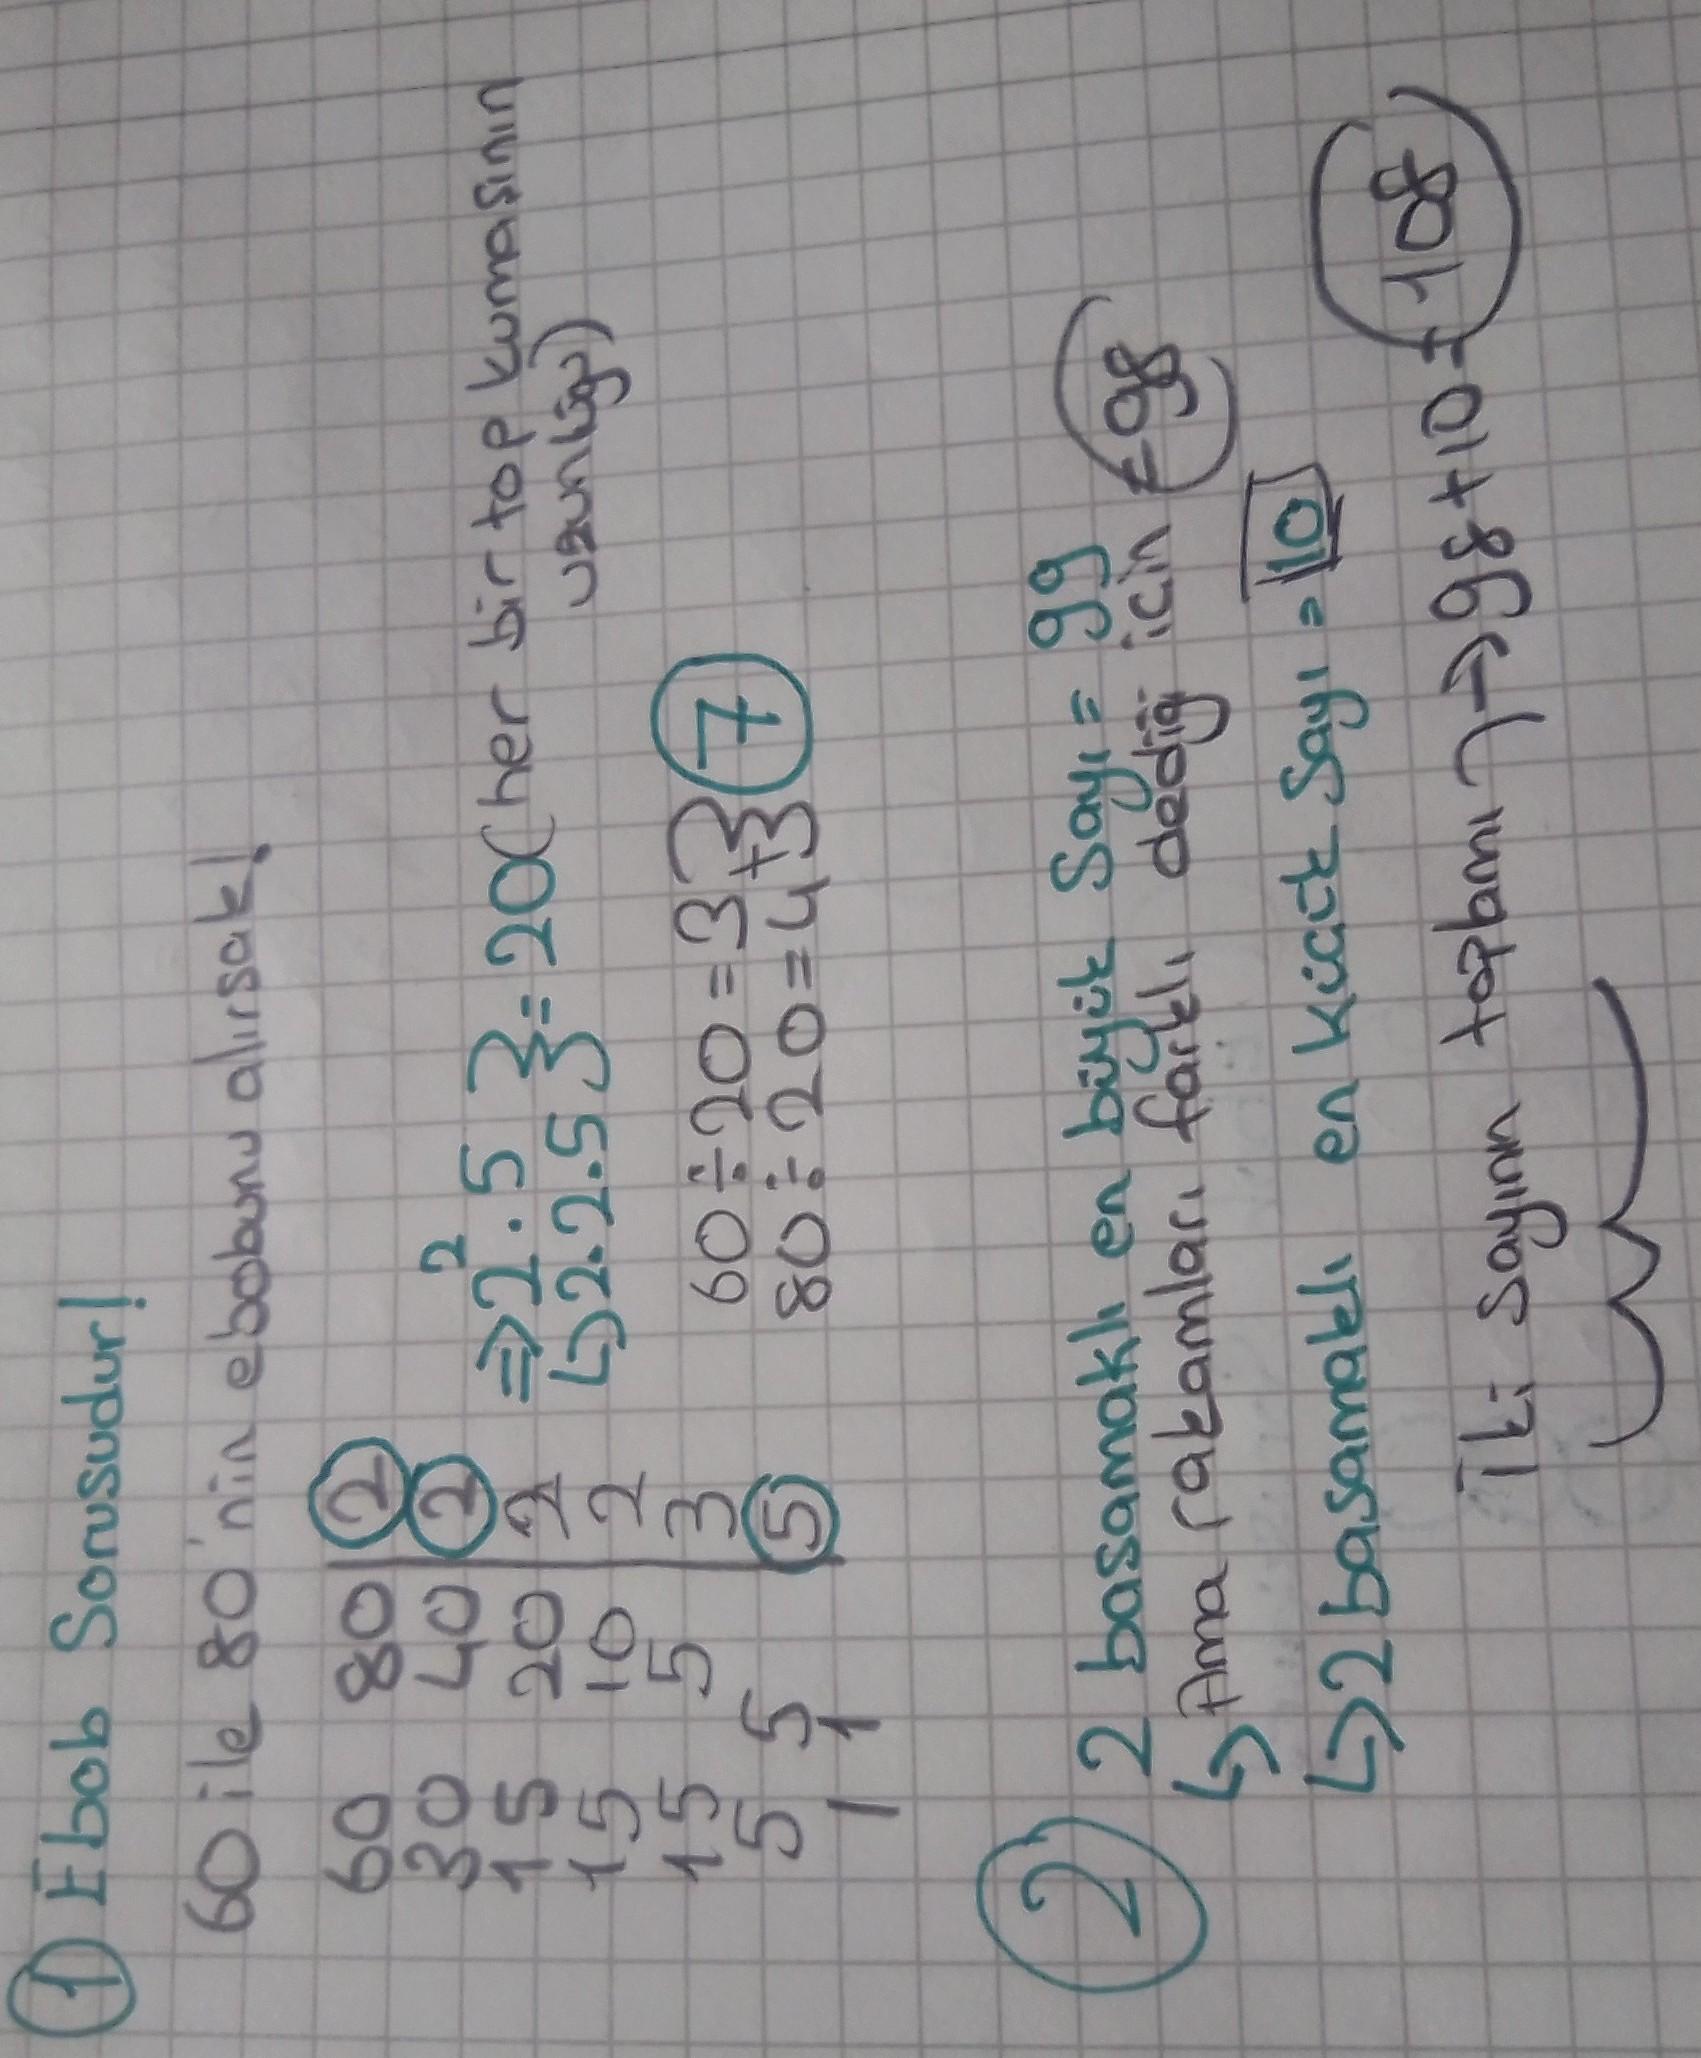 1) Ebob Sorusudur!
60 ile 80'nin ebobunu alırsak!
60 80 2
30 40 2
15 20 2
15 10 2
15 5 3
5 5 5
1 1
⇒ 2² . 5 = 20 (her bir top kumaşının uzunluğu)
↳ 2.2.5
60 ÷ 20 = 3
80 ÷ 20 = 4 + 7
2 2 basamaklı en büyük Sayı = 99
↳ Ama rakamları farklı dediğ için = 98
↳ 2 basamaklı en küçük Sayı = 10
İki sayının toplamı → 98 + 10 = 108